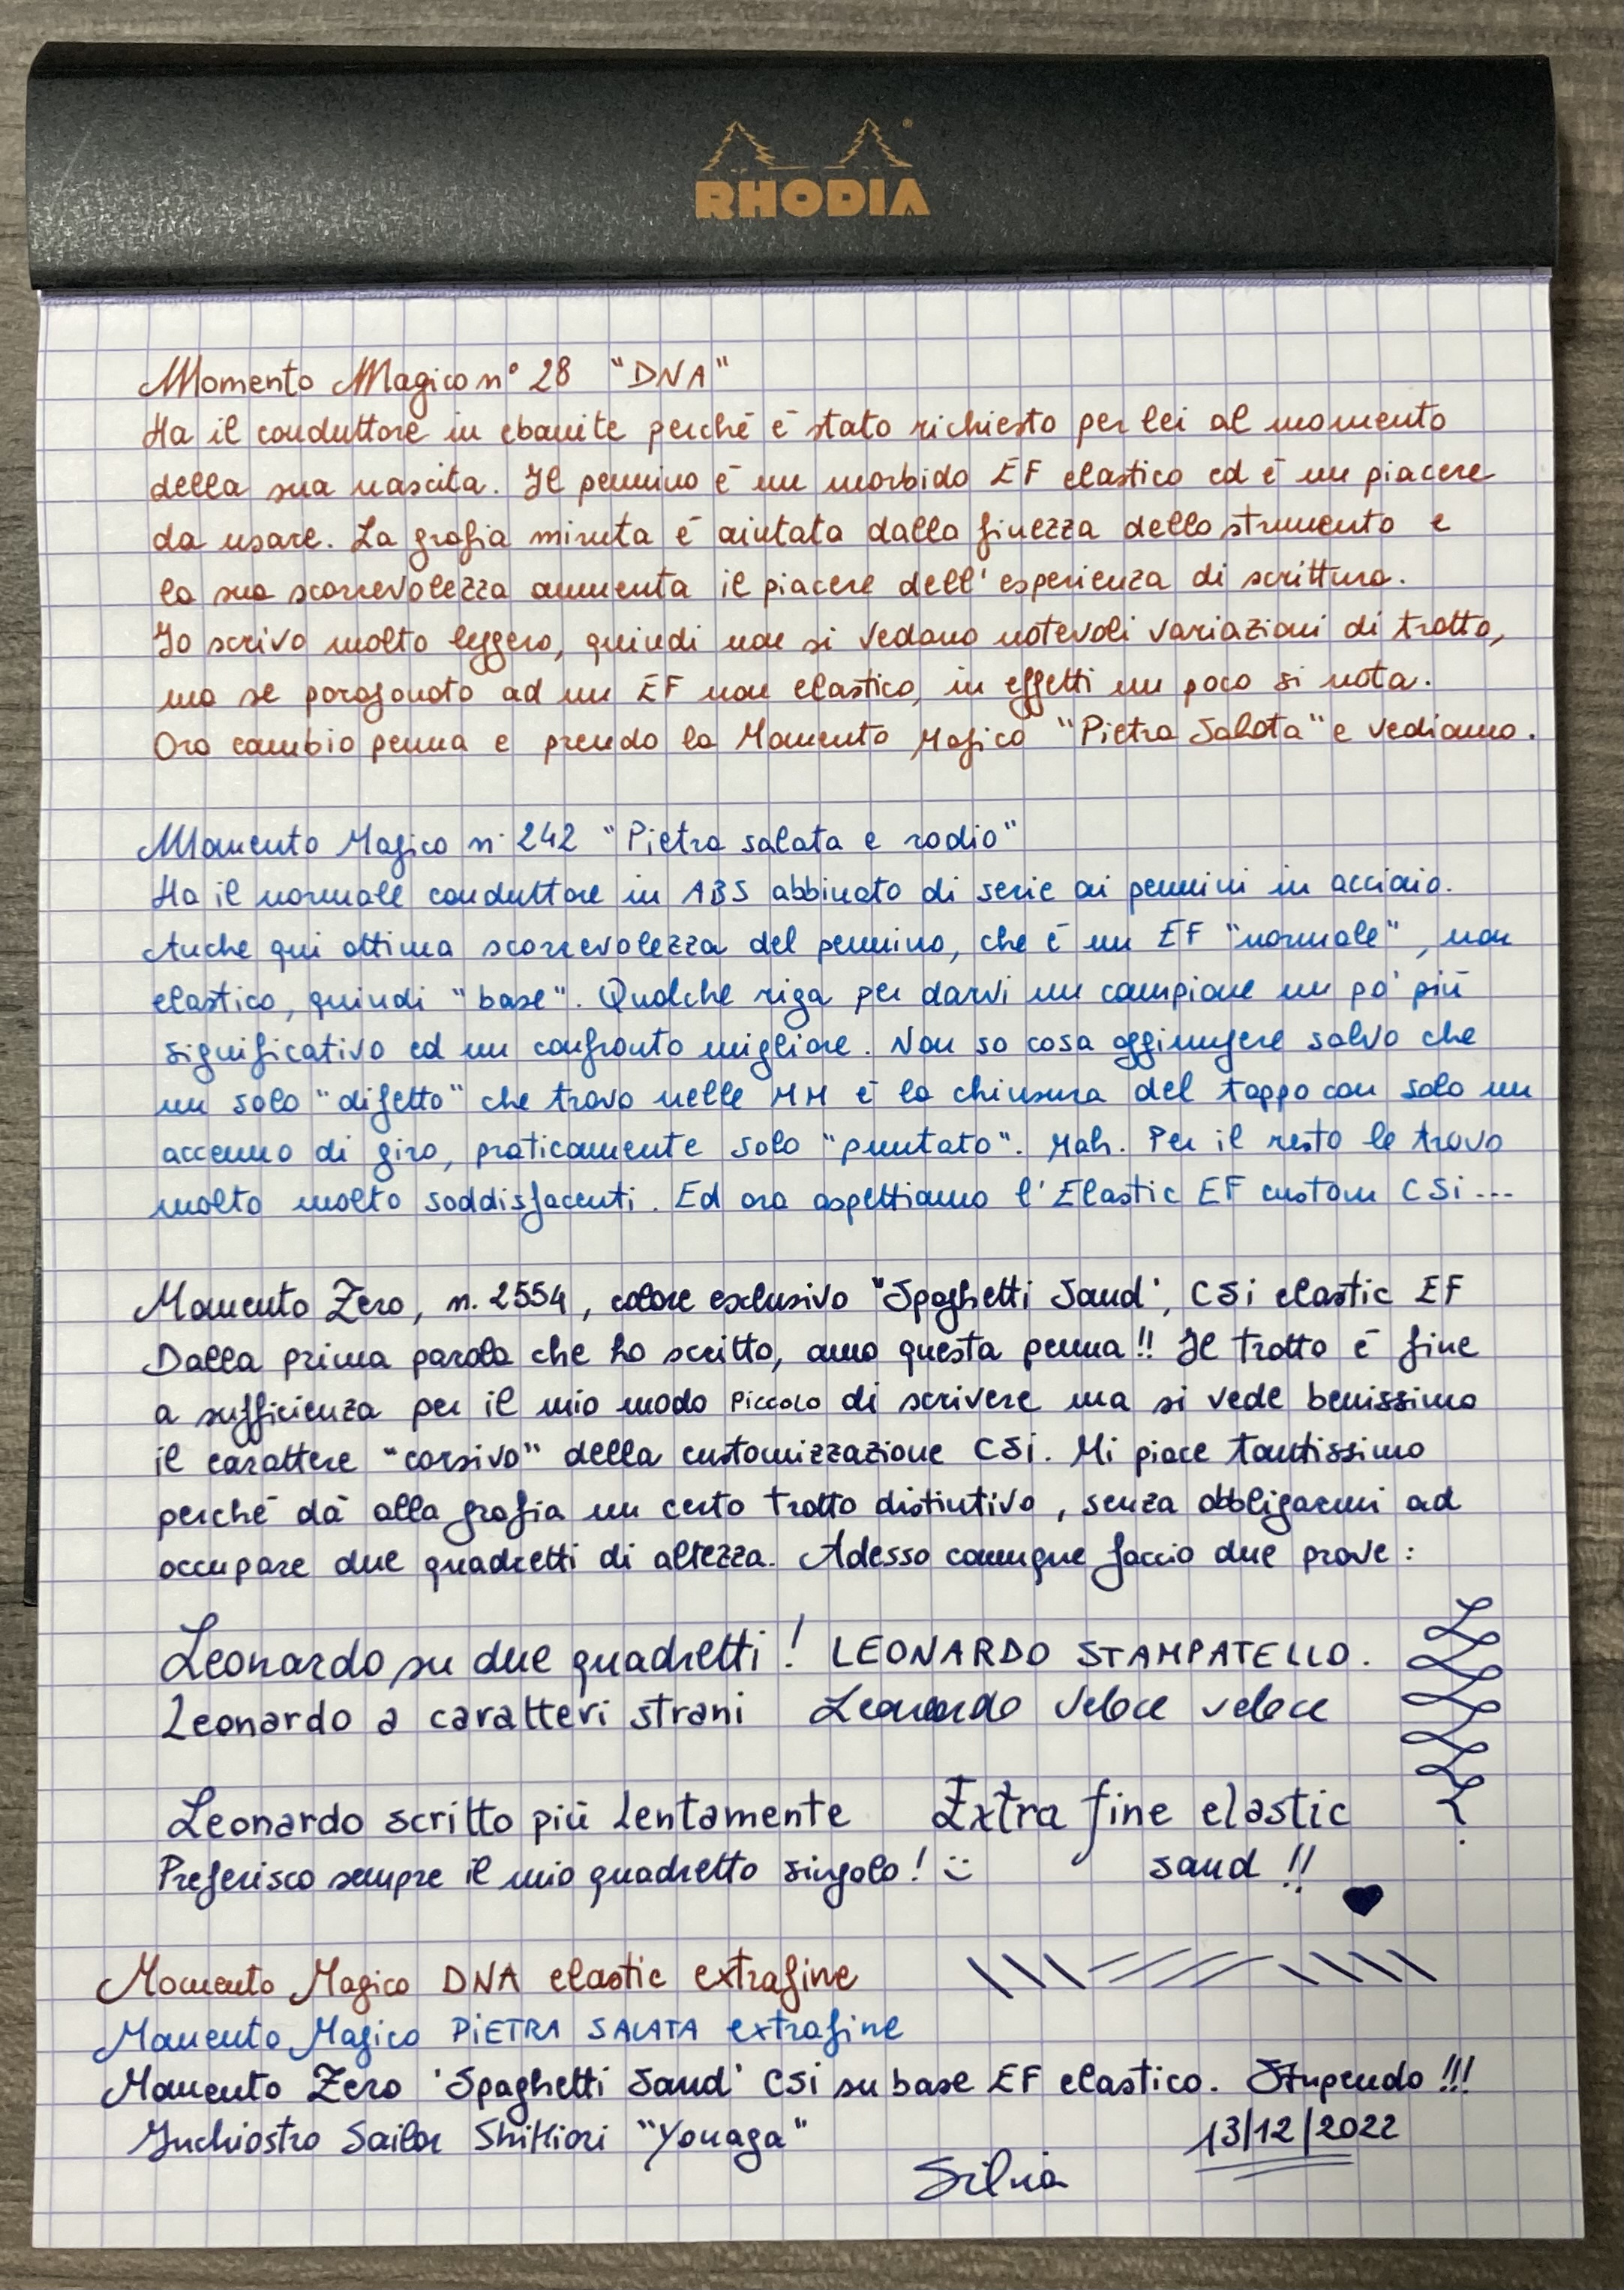 RHODIA
Momento Magico n° 28 "DNA"
Ha il conduttore in ebanite perché è stato richiesto per lei al momento
della sua nascita. Il pennino è un morbido EF elastico ed è un piacere
da usare. La grafia minuta è aiutata dalla finezza dello strumento e
la sua scorrevolezza aumenta il piacere dell'esperienza di scrittura.
Io scrivo molto leggero, quindi non si vedono notevoli variazioni di tratto,
ma se paragonato ad un EF non elastico, in effetti un poco si nota.
Ora cambio penna e prendo la Momento Magico "Pietra Salata" e vediamo.
Momento Magico n° 242 "Pietra salata e rodio"
Ha il normale conduttore in ABS abbinato di serie ai pennini in acciaio.
Anche qui ottima scorrevolezza del pennino, che è un EF "normale", non
elastico, quindi "base". Qualche riga per darvi un campione un po' più
significativo ed un confronto migliore. Non so cosa aggiungere salvo che
un solo "difetto" che trovo nelle MM è la chiusura del tappo con solo un
accenno di giro, praticamente solo "puntato". Mah. Per il resto le trovo
molto molto soddisfacenti. Ed ora aspettiamo l'Elastic EF custom CSi...
Momento Zero, n. 2554, colore esclusivo "Spaghetti Sand', CSi elastic EF
Dalla prima parola che ho scritto, amo questa penna!! Il tratto è fine
a sufficienza per il mio modo piccolo di scrivere ma si vede benissimo
il carattere "corsivo" della customizzazione CSi. Mi piace tantissimo
perché dà alla grafia un certo tratto distintivo, senza obbligarmi ad
occupare due quadretti di altezza. Adesso comunque faccio due prove:
Leonardo su due quadretti! LEONARDO STAMPATELLO.
Leonardo a caratteri strani Leonardo veloce veloce
Leonardo scritto più lentamente Extra fine elastic
Preferisco sempre il mio quadretto singolo! :) sand!!
Momento Magico DNA elastic extrafine
Momento Magico PIETRA SALATA extrafine
Momento Zero 'Spaghetti Sand' CSi su base EF elastico. Stupendo!!!
Inchiostro Sailor Shikiori "Yonaga" 13/12/2022
Silvia